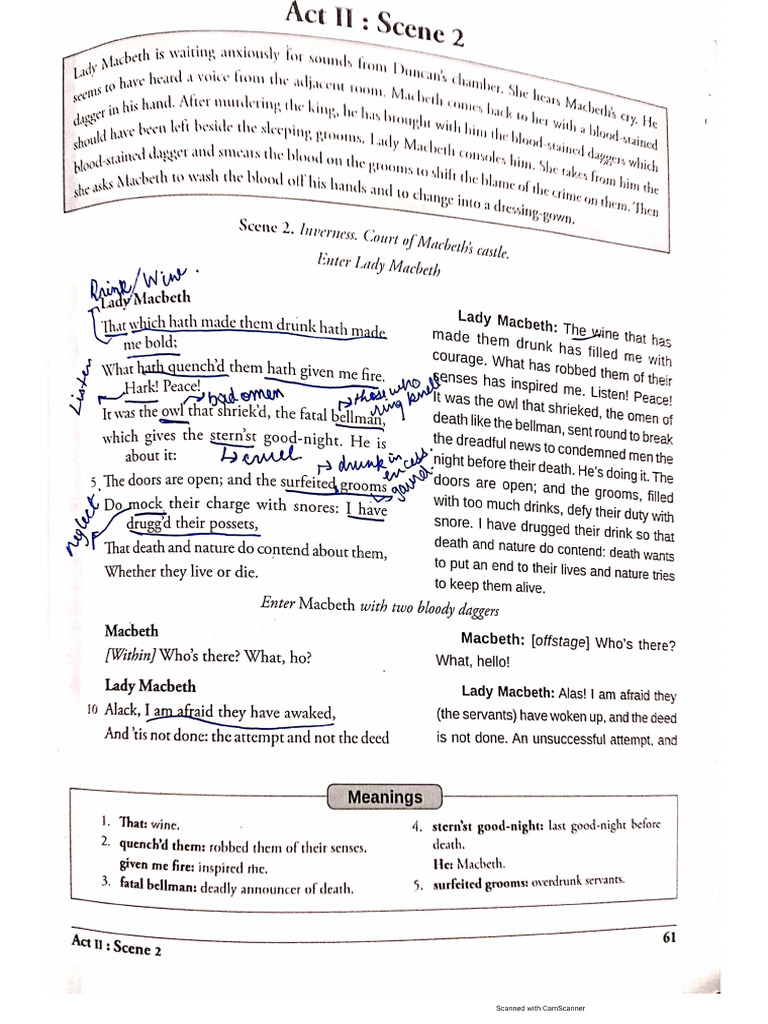 Act II : Scene 2
Lady Macbeth is waiting anxiously for sounds from Duncan's chamber. She hears Macbeth's cry. He
seems to have heard a voice from the adjacent room. Macbeth comes back to her with a blood-stained
dagger in his hand. After murdering the king, he has brought with him the blood-stained daggers which
should have been left beside the sleeping grooms. Lady Macbeth consoles him. She takes from him the
blood-stained dagger and smears the blood on the grooms to shift the blame of the crime on them. Then
she asks Macbeth to wash the blood off his hands and to change into a dressing-gown.
Scene 2. Inverness. Court of Macbeth's castle.
Enter Lady Macbeth
Drink/Wine.
Lady Macbeth
That which hath made them drunk hath made
me bold;
What hath quench'd them hath given me fire.
Listen
Hark! Peace!
bad omen
those who
ring knell
It was the owl that shriek'd, the fatal bellman,
which gives the stern'st good-night. He is
about it:
cruel
drunk in
excess.
5. The doors are open; and the surfeited grooms
neglect
Do mock their charge with snores: I have
drugg'd their possets,
That death and nature do contend about them,
Whether they live or die.
Lady Macbeth: The wine that has
made them drunk has filled me with
courage. What has robbed them of their
senses has inspired me. Listen! Peace!
It was the owl that shrieked, the omen of
death like the bellman, sent round to break
the dreadful news to condemned men the
night before their death. He's doing it. The
doors are open; and the grooms, filled
with too much drinks, defy their duty with
snore. I have drugged their drink so that
death and nature do contend: death wants
to put an end to their lives and nature tries
to keep them alive.
Enter Macbeth with two bloody daggers
Macbeth
[Within] Who's there? What, ho?
Lady Macbeth
10 Alack, I am afraid they have awaked,
And 'tis not done: the attempt and not the deed
Macbeth: [offstage] Who's there?
What, hello!
Lady Macbeth: Alas! I am afraid they
(the servants) have woken up, and the deed
is not done. An unsuccessful attempt, and
Meanings
1. That: wine.
2. quench'd them: robbed them of their senses.
given me fire: inspired me.
3. fatal bellman: deadly announcer of death.
4. stern'st good-night: last good-night before
death.
He: Macbeth.
5. surfeited grooms: overdrunk servants.
Act II : Scene 2
61
Scanned with CamScanner